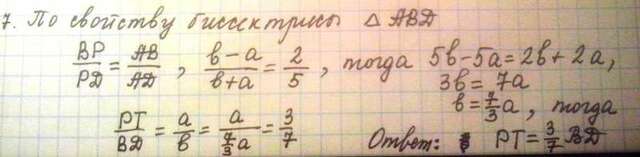 7. По свойству биссектрисы △ ABD
BP/PD = AB/AD , b-a/b+a = 2/5 , тогда 5b-5a=2b+2a,
3b= 7a
b= 7/3 a , тогда
PT/BD = a/b = a/(7/3 a) = 3/7
Ответ: PT= 3/7 BD